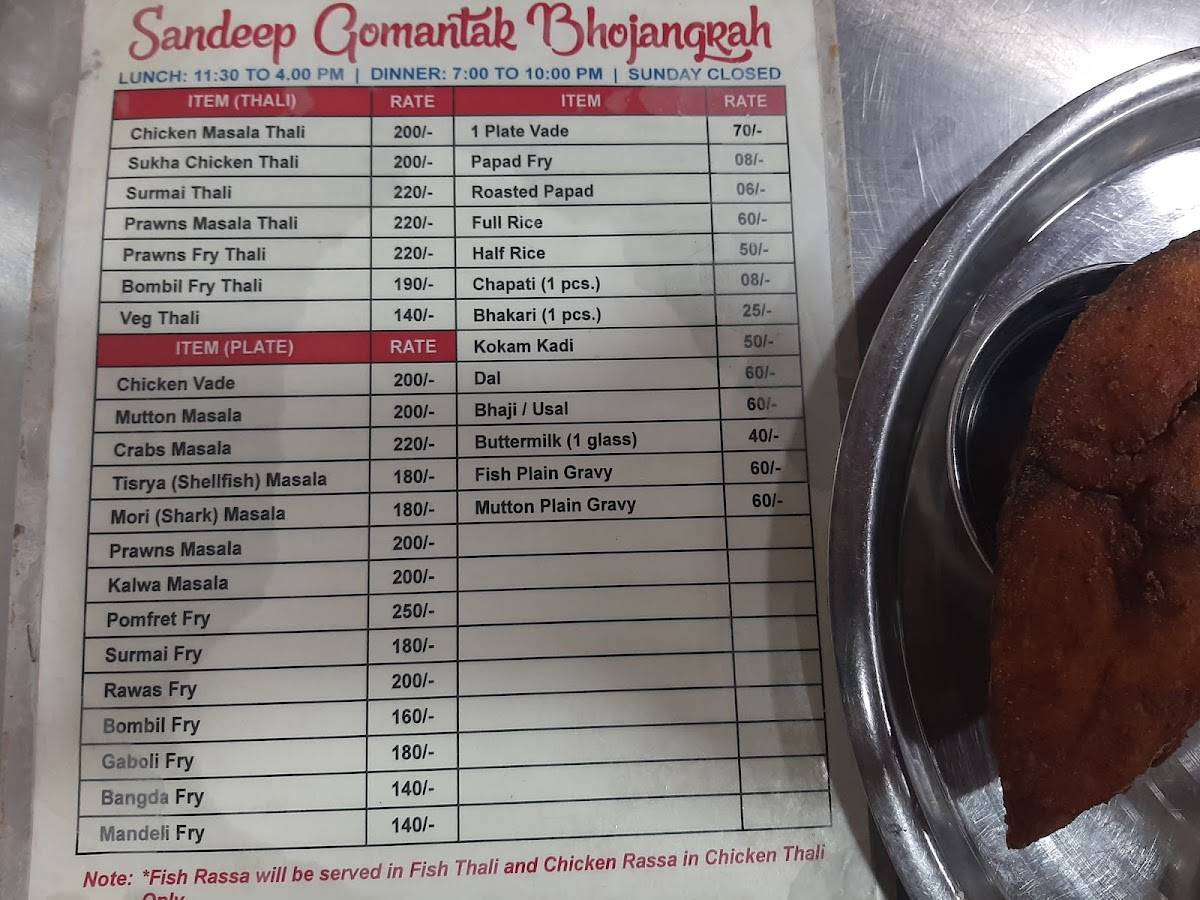 Sandeep Gomantak Bhojangrah
LUNCH: 11:30 TO 4.00 PM | DINNER: 7:00 TO 10:00 PM | SUNDAY CLOSED
ITEM (THALI) RATE ITEM RATE
Chicken Masala Thali 200/- 1 Plate Vade 70/-
Sukha Chicken Thali 200/- Papad Fry 08/-
Surmai Thali 220/- Roasted Papad 06/-
Prawns Masala Thali 220/- Full Rice 60/-
Prawns Fry Thali 220/- Half Rice 50/-
Bombil Fry Thali 190/- Chapati (1 pcs.) 08/-
Veg Thali 140/- Bhakari (1 pcs.) 25/-
ITEM (PLATE) RATE Kokam Kadi 50/-
Chicken Vade 200/- Dal 60/-
Mutton Masala 200/- Bhaji / Usal 60/-
Crabs Masala 220/- Buttermilk (1 glass) 40/-
Tisrya (Shellfish) Masala 180/- Fish Plain Gravy 60/-
Mori (Shark) Masala 180/- Mutton Plain Gravy 60/-
Prawns Masala 200/-
Kalwa Masala 200/-
Pomfret Fry 250/-
Surmai Fry 180/-
Rawas Fry 200/-
Bombil Fry 160/-
Gaboli Fry 180/-
Bangda Fry 140/-
Mandeli Fry 140/-
Note: *Fish Rassa will be served in Fish Thali and Chicken Rassa in Chicken Thali
Only